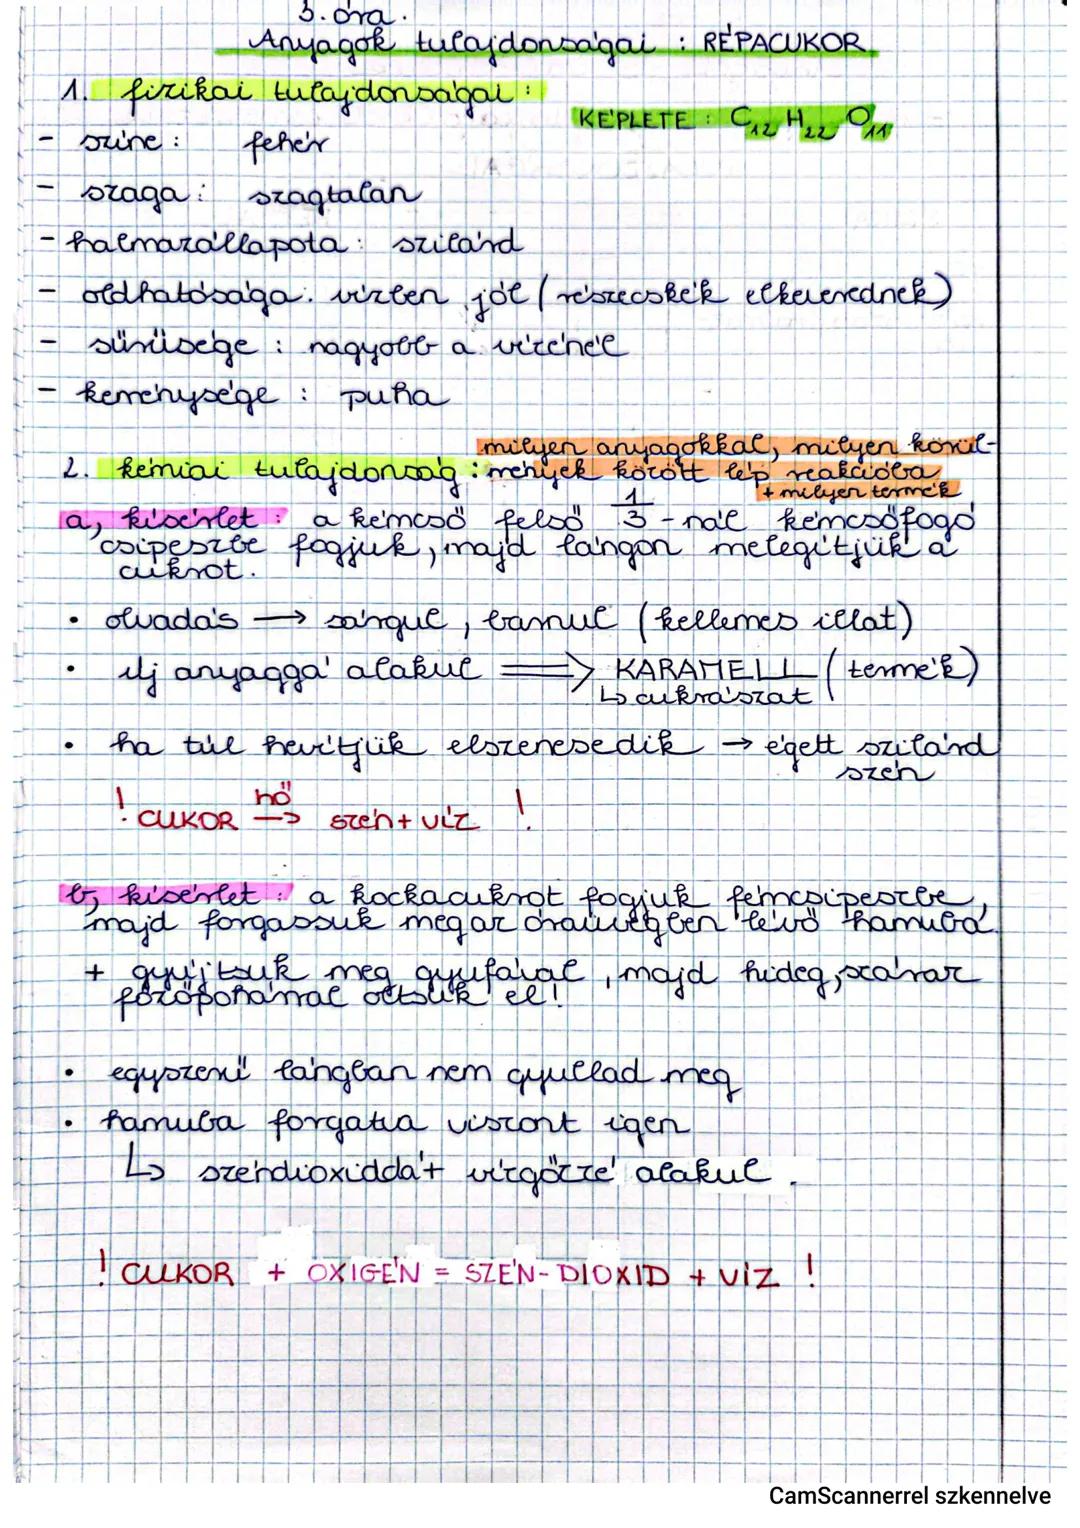 3. óra.
Anyagok tulajdonságai : RÉPACUKOR
1. fizikai tulajdonságai :
KÉPLETE : C12 H22 O11
- színe : fehér
- szaga : szagtalan
- halmazállapota : szilárd
- oldhatósága : vízben jól (részecskék elkeverednek)
- sűrűsége : nagyobb a vízénél
- keménysége : puha
milyen anyagokkal, milyen körül-
2. kémiai tulajdonság : mények között lép reakcióba
+ milyen termék
a, kísérlet : a kémcső felső 1/3-nál kémcsőfogó
csipeszbe fogjuk, majd lángon melegítjük a
cukrot.
• olvadás → sárgul, barnul (kellemes illat)
• új anyaggá alakul ⇒ KARAMELL (termék)
↳ cukrászat
• ha túl hevítjük elszenesedik → égett szilárd
szén
! CUKOR hő → szén + víz !
b, kísérlet : a kockacukrot fogjuk fémcsipeszbe,
majd forgassuk meg az óraüvegben lévő hamuba
+ gyújtsuk meg gyufával, majd hideg, száraz
főzőpohárral oltsuk el!
• egyszerű lángban nem gyullad meg
• hamuba forgatva viszont igen
↳ széndioxiddá + vízgőzzé alakul.
! CUKOR + OXIGÉN = SZÉN-DIOXID + VÍZ !
CamScannerrel szkennelve